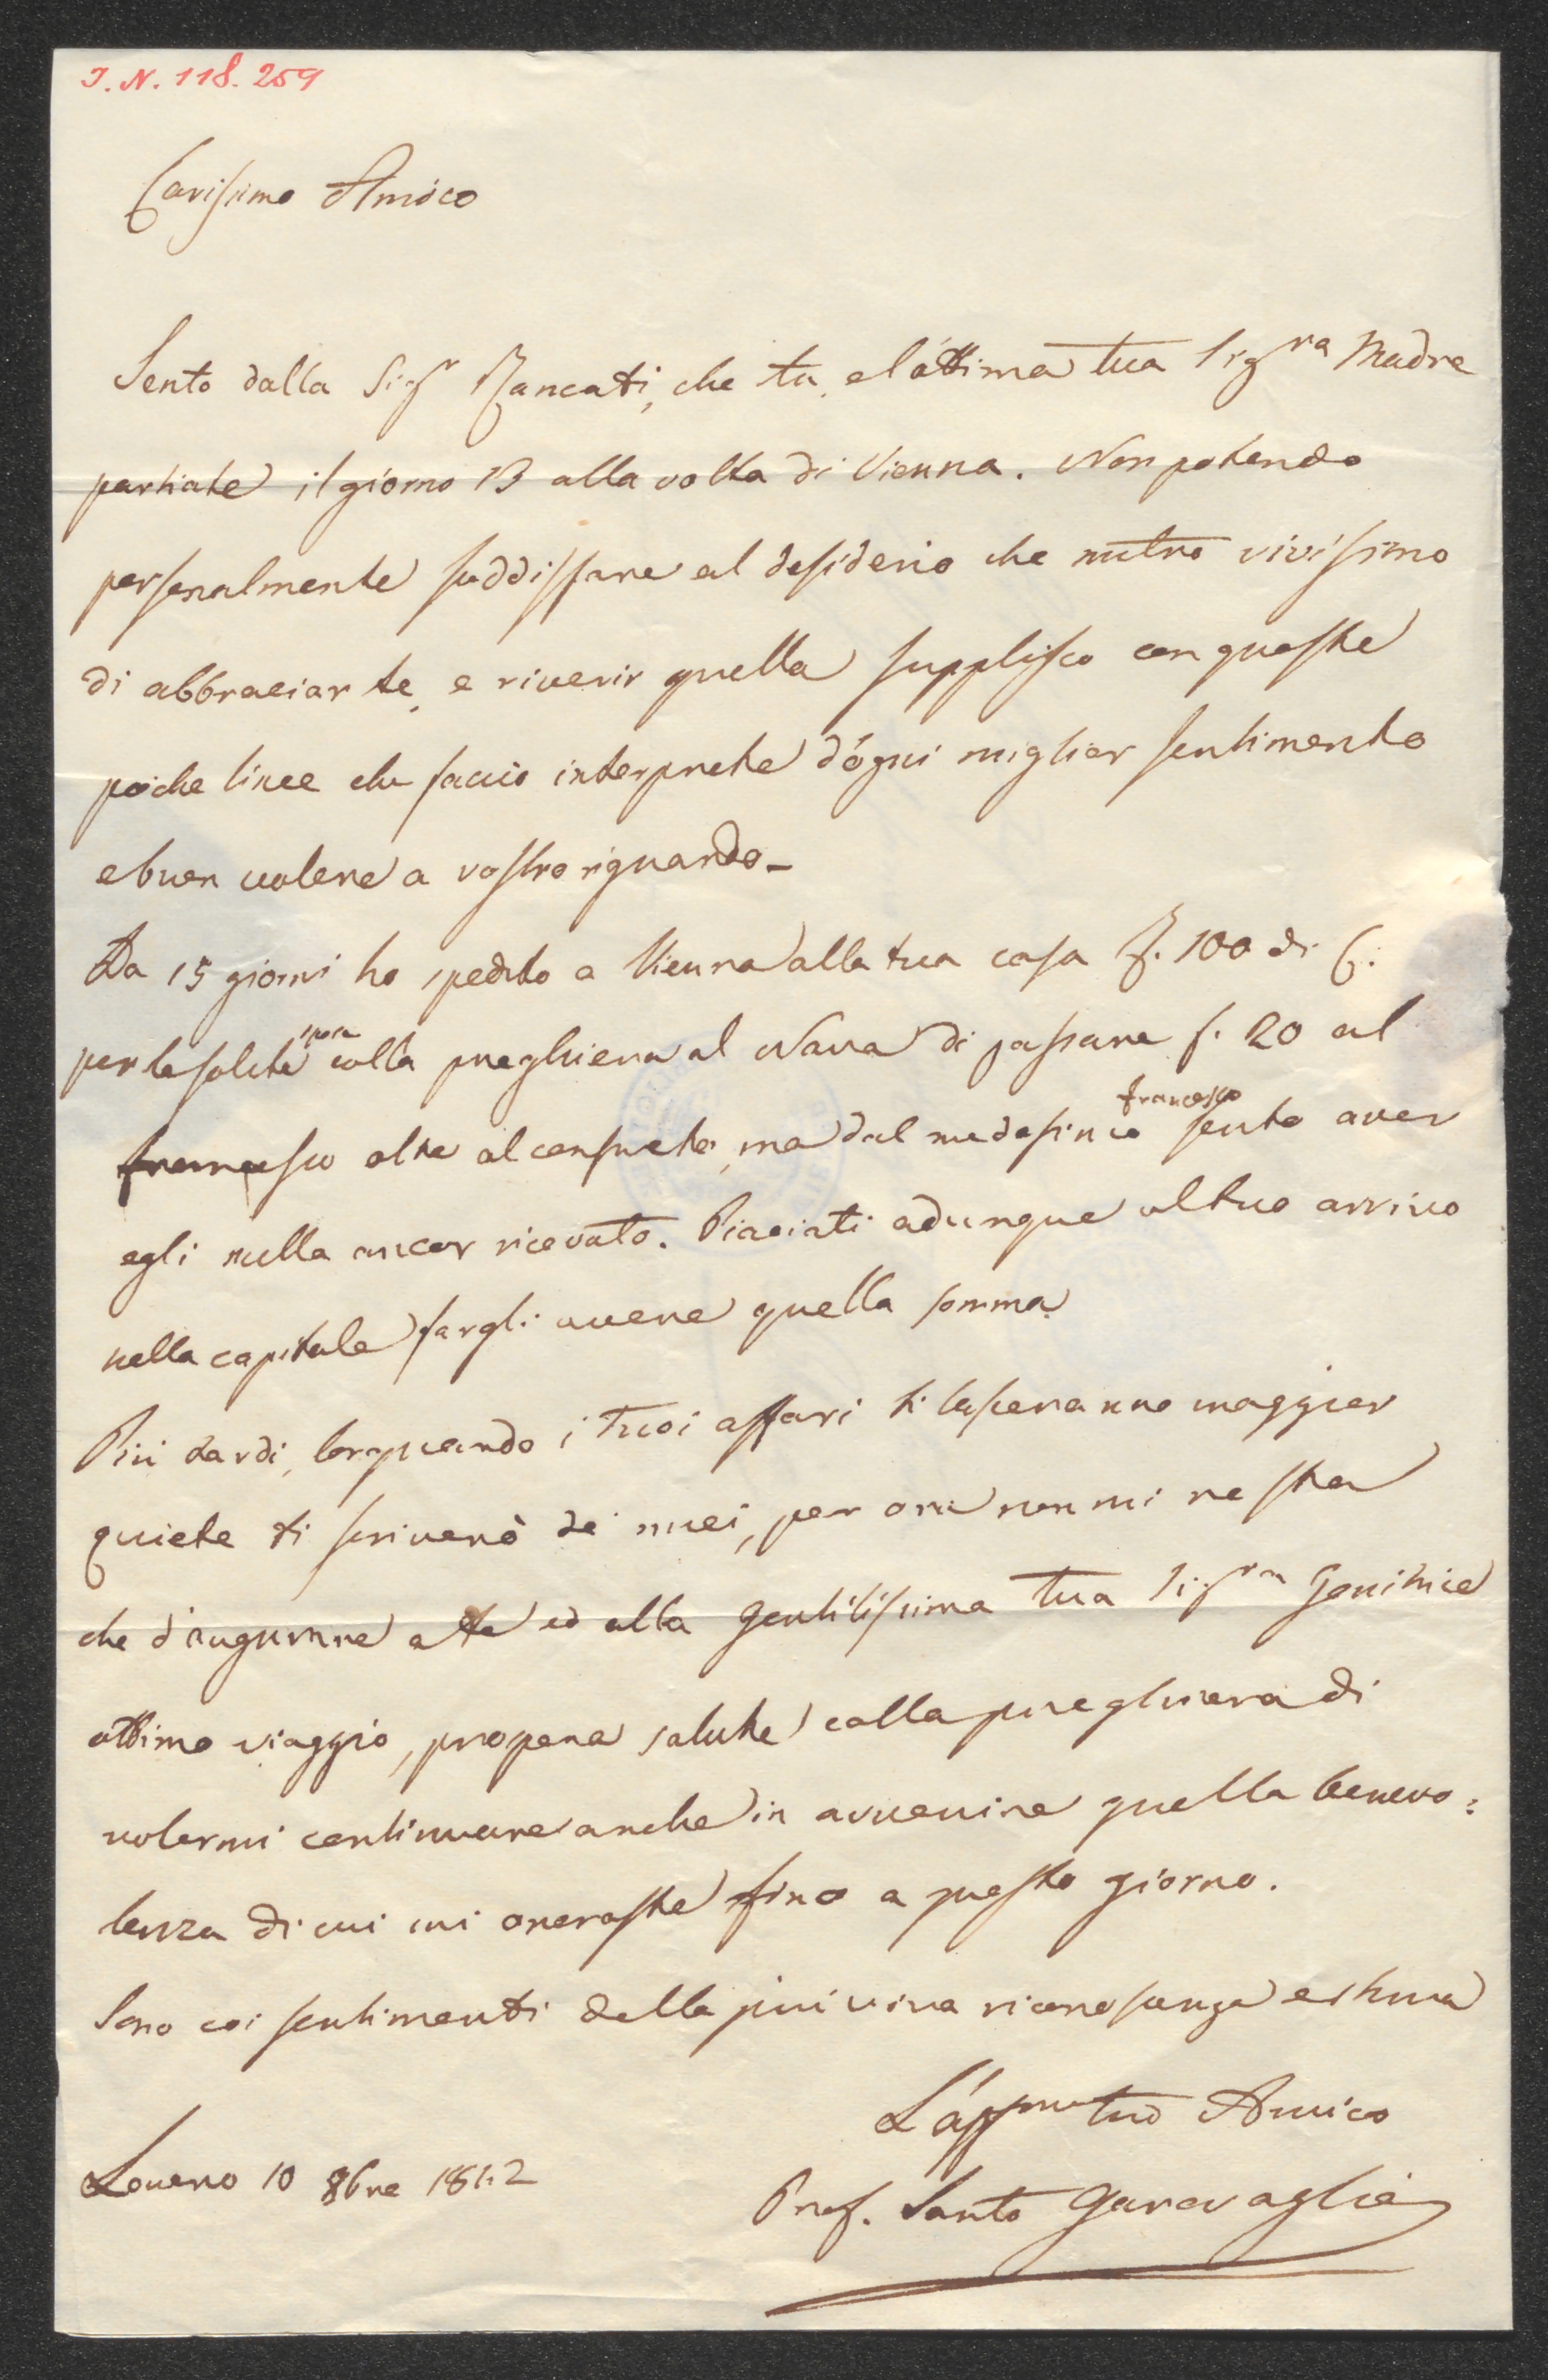 I. N. 118. 259
Carissimo Amico
Sento dalla Sigr Rancati, che tu, e l'ottima tua Sigra Madre
partiate il giorno 13 alla volta di Vienna. Non potendo
personalmente soddisfare al desiderio che nutro vivissimo
di abbracciar te, e riverir quella supplisco con queste
poche linee che faccio interprete d'ogni miglior sentimento
e buon volere a vostro riguardo_
Da 15 giorni ho spedito a Vienna alla tua casa f. 100 di C.
per le solite spese colla preghiera al Nava di passare f. 20 al
francesco oltre al consueto, ma dal medesimo francesco sento aver
egli nulla ancor ricevuto. Piaciati adunque al tuo arrivo
nella capitale fargli avere quella somma.
Più tardi, lorquando i tuoi affari ti lasceranno maggior
quiete ti scriverò de' miei, per ora non mi resta
che d'augurare a te ed alla gentilissima tua Sigra Genitrice
ottimo viaggio, prospera salute colla preghiera di
volermi continuare anche in avvenire quella benevo:
lenza di cui mi onoraste fino a questo giorno.
Sono coi sentimenti della più viva riconoscenza e stima
L'affmo tuo Amico
Prof. Santo Garavaglia
Loveno 10 8bre 1842